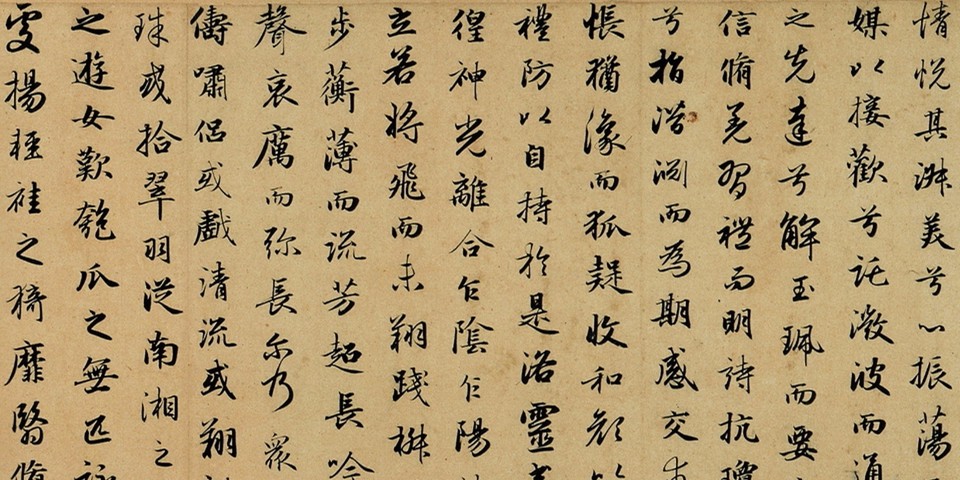 情悦其淑美兮心振蕩
媒以接歡兮託微波而通
之先達兮解玉珮而要
信脩羌習禮而明詩抗瓊
兮指潛淵而為期感交
悵猶豫而狐疑收和顏
禮防以自持於是洛靈
徨神光離合乍陰乍陽
立若將飛而未翔踐椒
步蘅薄而流芳超長吟
聲哀厲而弥長尔乃眾
儔嘯侶或戲清流或翔
珠或拾翠羽從南湘之
之遊女歎匏瓜之無匹詠
處揚輕袿之猗靡翳脩